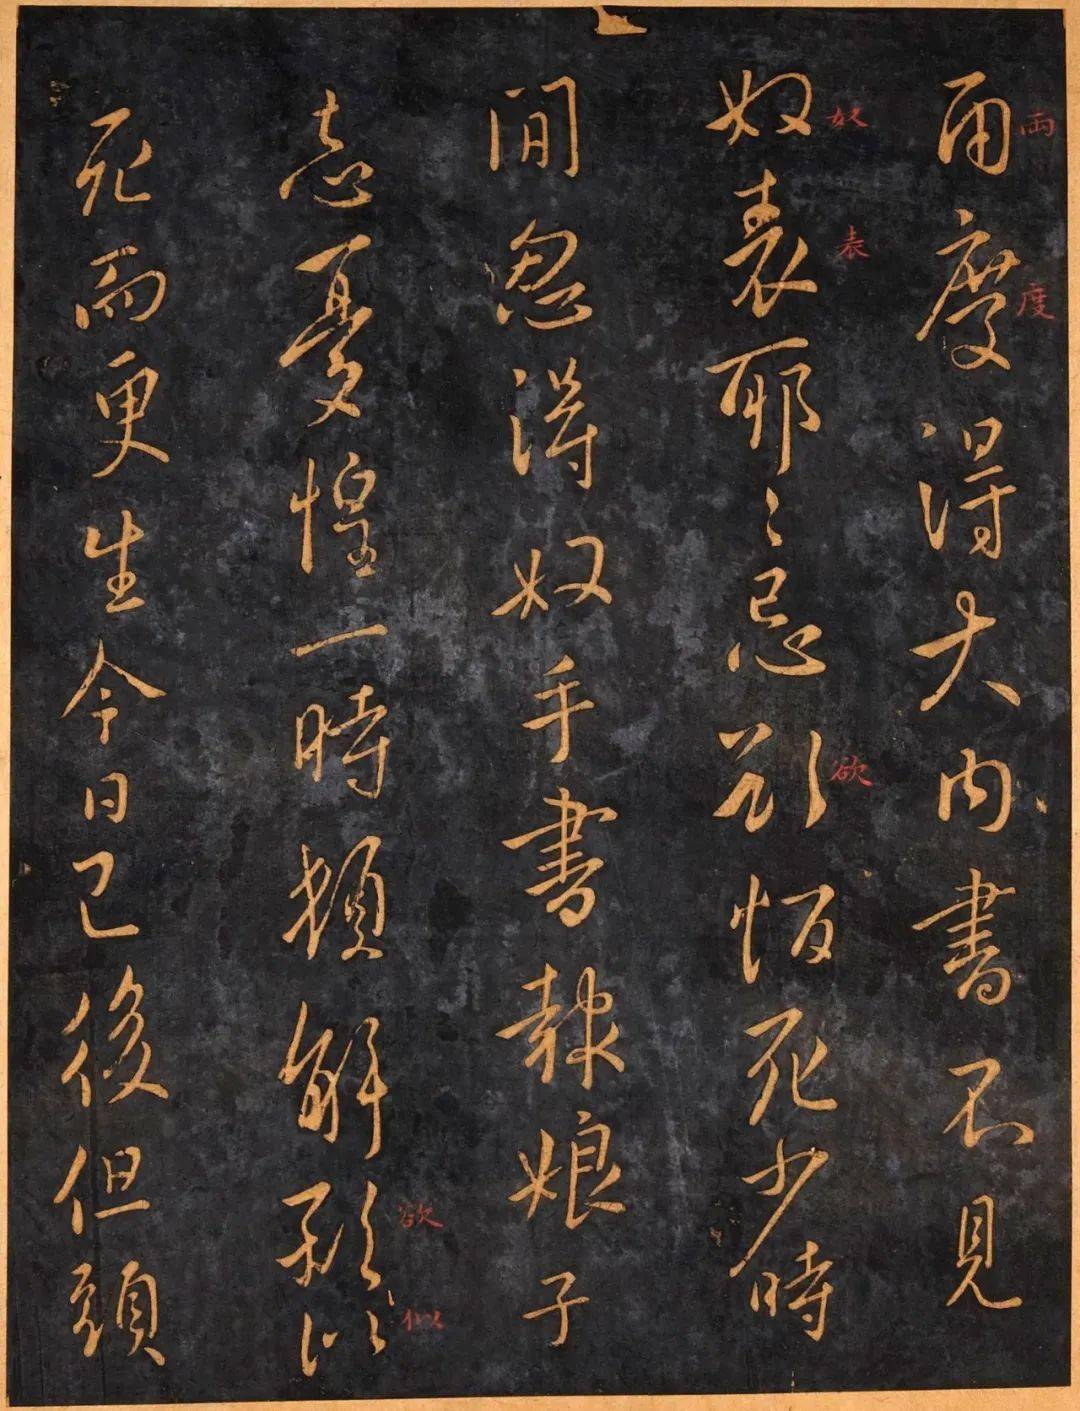 兩度
兩度得大内書不見
奴表欲
奴表耶〻忌欲恒死少時
間忽得奴手書報娘子
欲似
憂惶一時頓解欲似
死而更生今日已後但頭